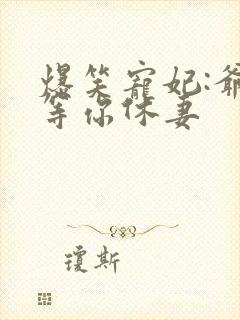 爆笑寵妃:爺
等你休妻
瓊斯